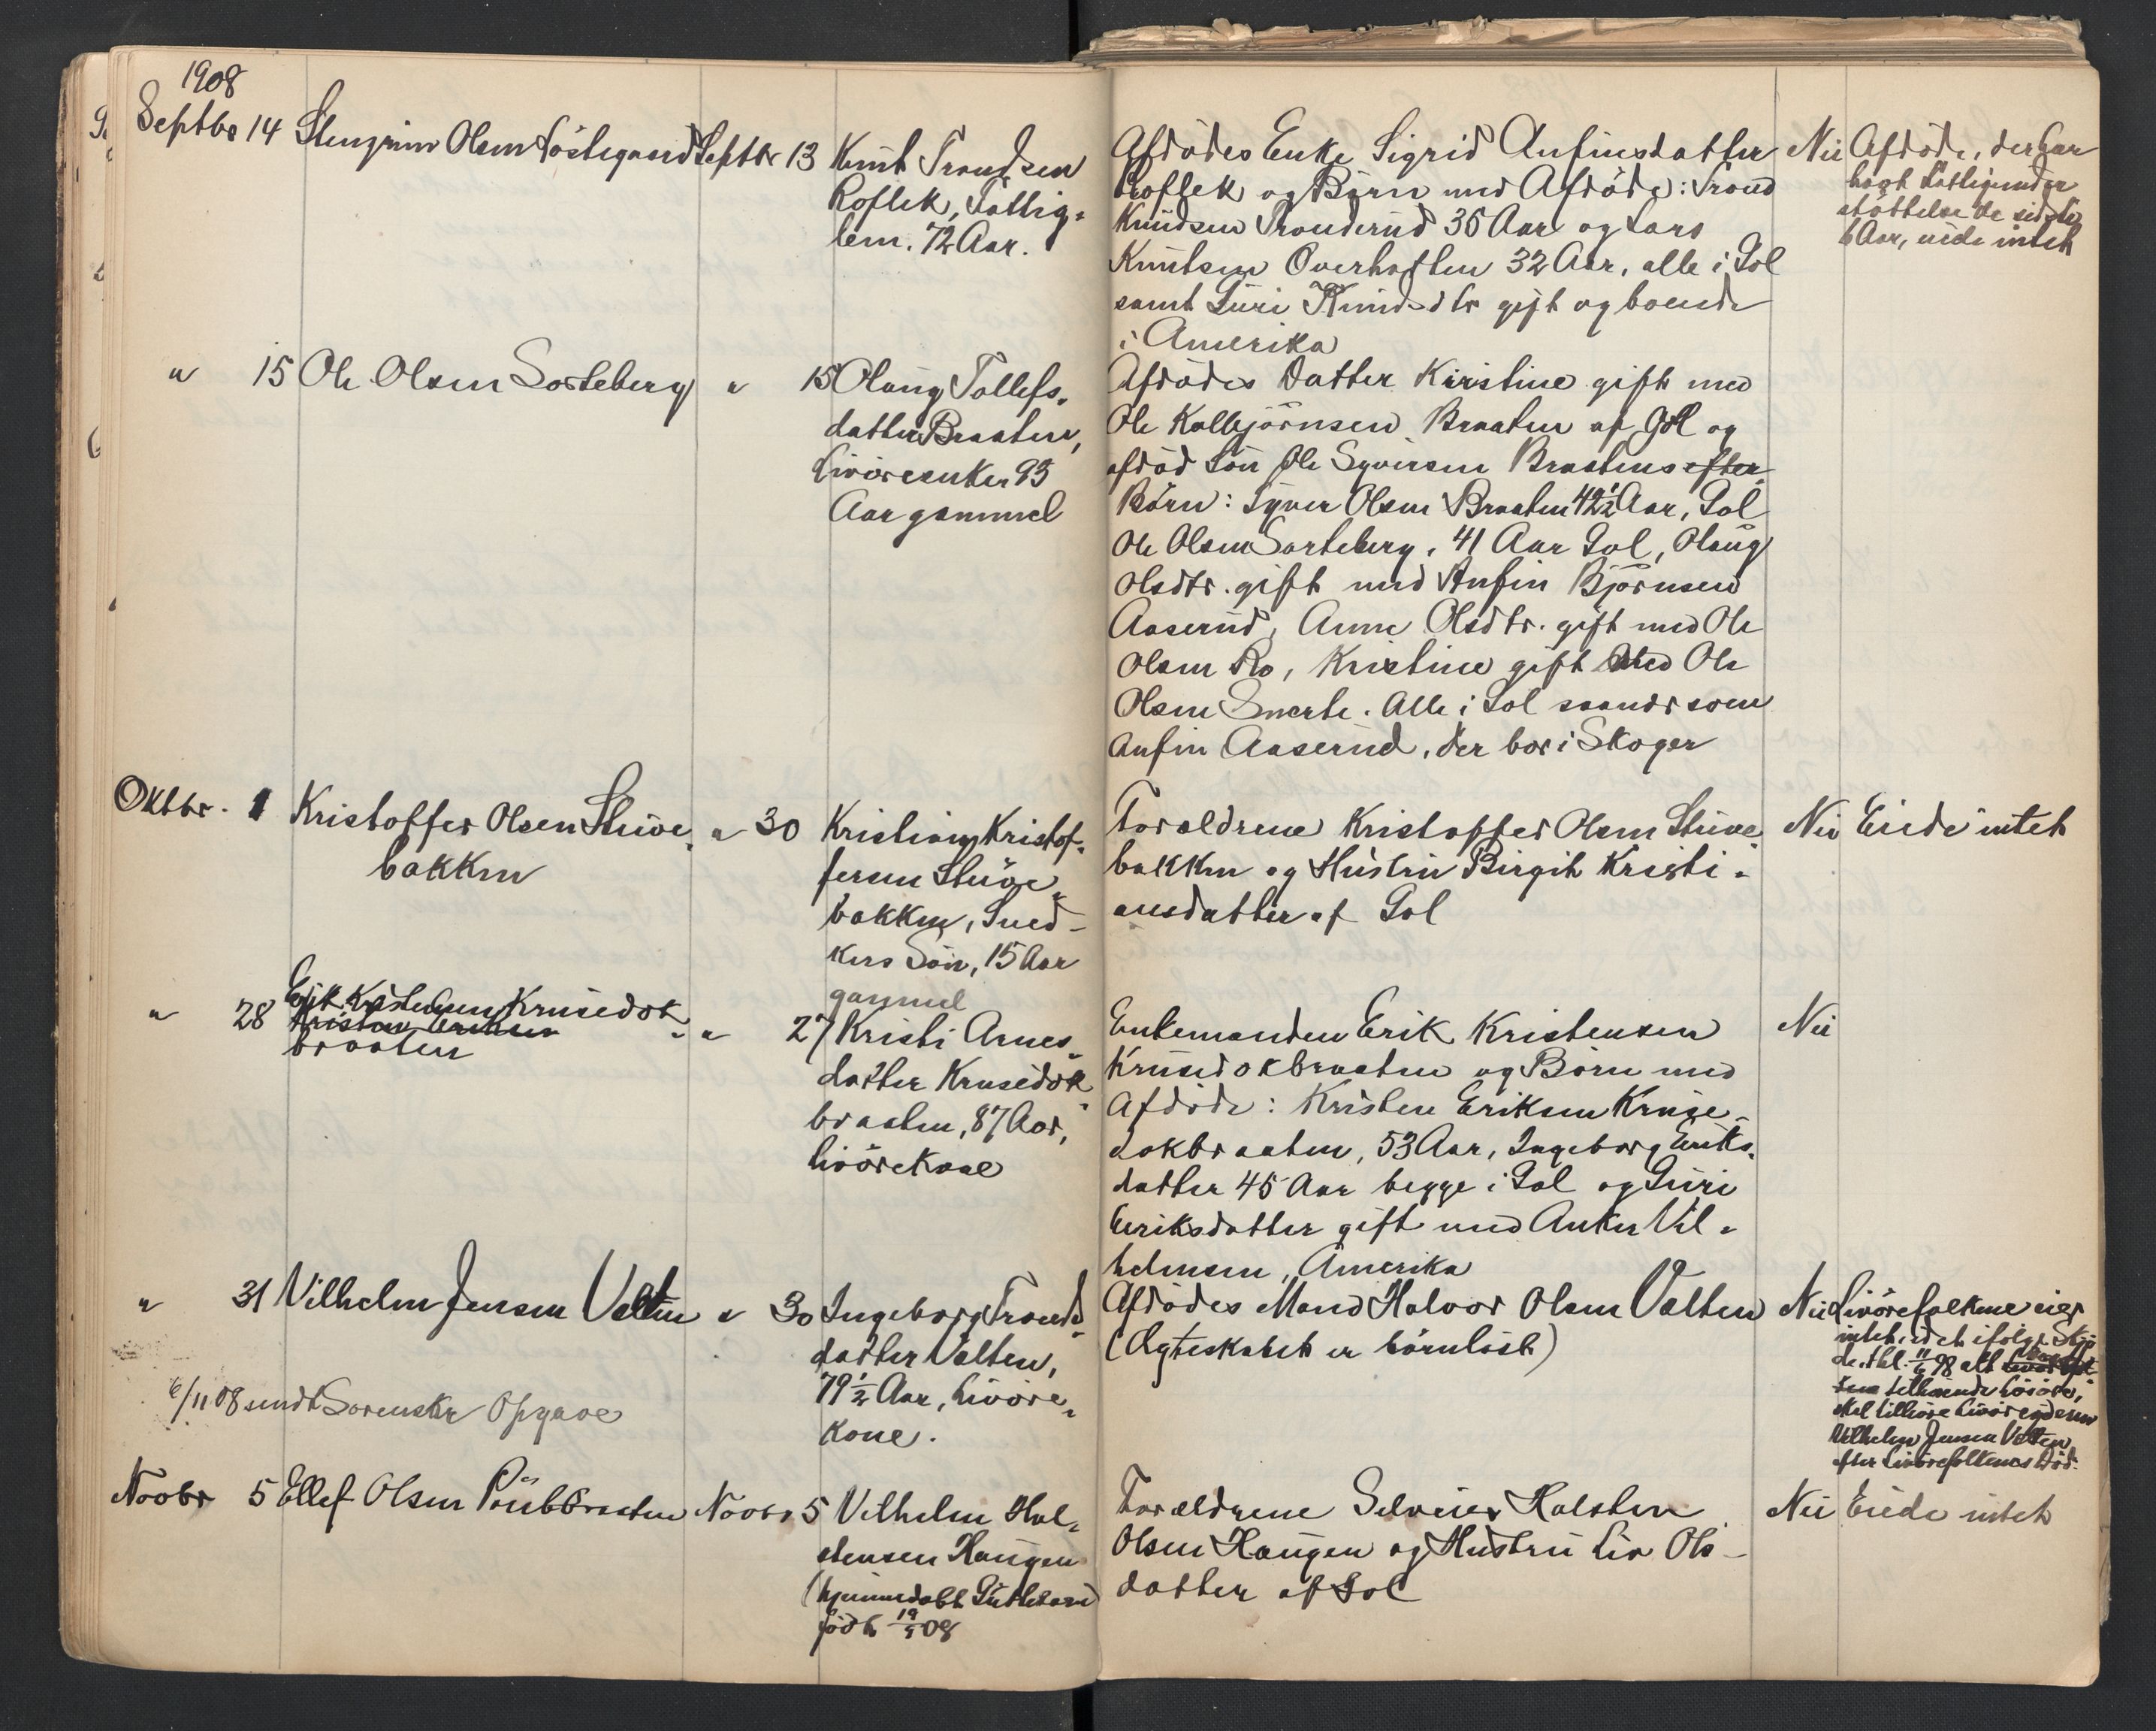 1908
Septbr 14 Stengrim Olsen Löstegaard Septbr 13 Knut Trondsen
Roflek, Fattig-
lem. 72 Aar.
Afdödes Enke Sigrid Anfinsdatter
Roflek og Börn med Afdöde: Trond
Knudsen Tronderud 36 Aar og Lars
Knutsen Overhaften 32 Aar, alle i Gol
samt Guri Knudsdtr gift og boende
i Amerika
Nei
Afdöde, der har
havt Fattigunder
stöttelse de sidste
6 Aar, eiede intet
" 15 Ole Olsen Sorteberg " 15 Olaug Tollefs-
datter Braaten,
Livöresenke 93
Aar gammel
Afdödes Datter Kirstine gift med
Ole Kolbjörnsen Braaten af Gol og
afdöd Sön Ole Syversen Braatens efter
Börn: Syver Olsen Braaten 42½ Aar, Gol
Ole Olsen Sorteberg, 41 Aar Gol, Olaug
Olsdtr. gift med Anfin Björnsen
Aaserud, Anne Olsdtr. gift med Ole
Olsen Ro, Kristine gift med Ole
Olsen Snerte. Alle i Gol saanær som
Anfin Aaserud, der bor i Skoger
Oktbr. 1 Kristoffer Olsen Stuve-
bakken
" 30 Kristian Kristof-
fersen Stuve-
bakken, Sned-
kers Sön, 15 Aar
gammel
Forældrene Kristoffer Olsen Stuve-
bakken og Hustru Birgit Kristi-
ansdatter af Gol
Nei Eiede intet
" 28 Erik Kristensen Krusedok-
Kristen Eriksen
braaten
" 27 Kristi Arnes-
datter Krusedok-
braaten, 87 Aar,
Livörekone
Enkemanden Erik Kristensen
Krusedokbraaten og Börn med
Afdöde: Kristen Eriksen Kruse-
dokbraaten, 53 Aar, Ingeborg Eriks-
datter 45 Aar begge i Gol og Guri
Eriksdatter gift med Anker Vil-
helmsen, Amerika
Nei
" 31 Vilhelm Jensen Volten " 30 Ingeborg Tronds-
datter Volten,
79½ Aar, Livöre-
kone.
Afdödes Mand Halvor Olsen Volten
(Ægteskabet er börnlöst)
Nei Livörefolkene eier
intet, idet ifölge Skjö
de, thl. 11/6 98 alt
tilhörende Lösöre,
skal tilhöre Livöreyderen
Vilhelm Jensen Volten
efter Livörefolkenes Död.
6/11 08 sendt Sorenskr Opgave
Novbr 5 Ellef Olsen Novbr 5 Vilhelm Hal-
stensen Haugen
(hjemmedöbt Guttebarn)
födt 19/5 08
Forældrene Selveier Halsten
Olsen Haugen og Hustru Liv Ols-
datter af Gol
Nei Eiede intet